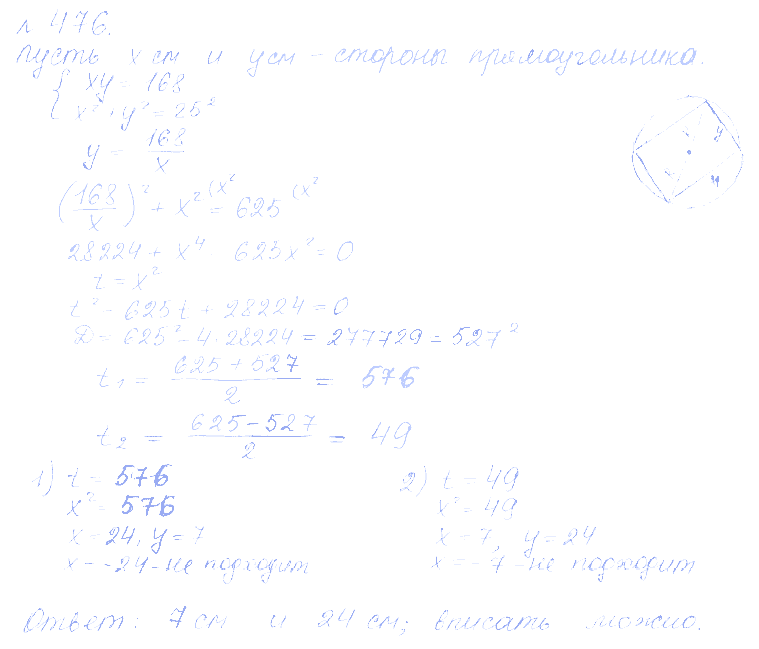 № 476.
Пусть x см и y см - стороны прямоугольника.
{ xy = 168
x² + y² = 25²
y = 168/x
(168/x)² + x² = 625 (x² (x²
28224 + x⁴ - 625x² = 0
t = x²
t² - 625t + 28224 = 0
D = 625² - 4·28224 = 277729 = 527²
t₁ = (625 + 527)/2 = 576
t₂ = (625 - 527)/2 = 49
1) t = 576
x² = 576
x = 24, y = 7
x = -24 - не подходит
2) t = 49
x² = 49
x = 7, y = 24
x = -7 - не подходит
Ответ: 7 см и 24 см; вписать можно.
y